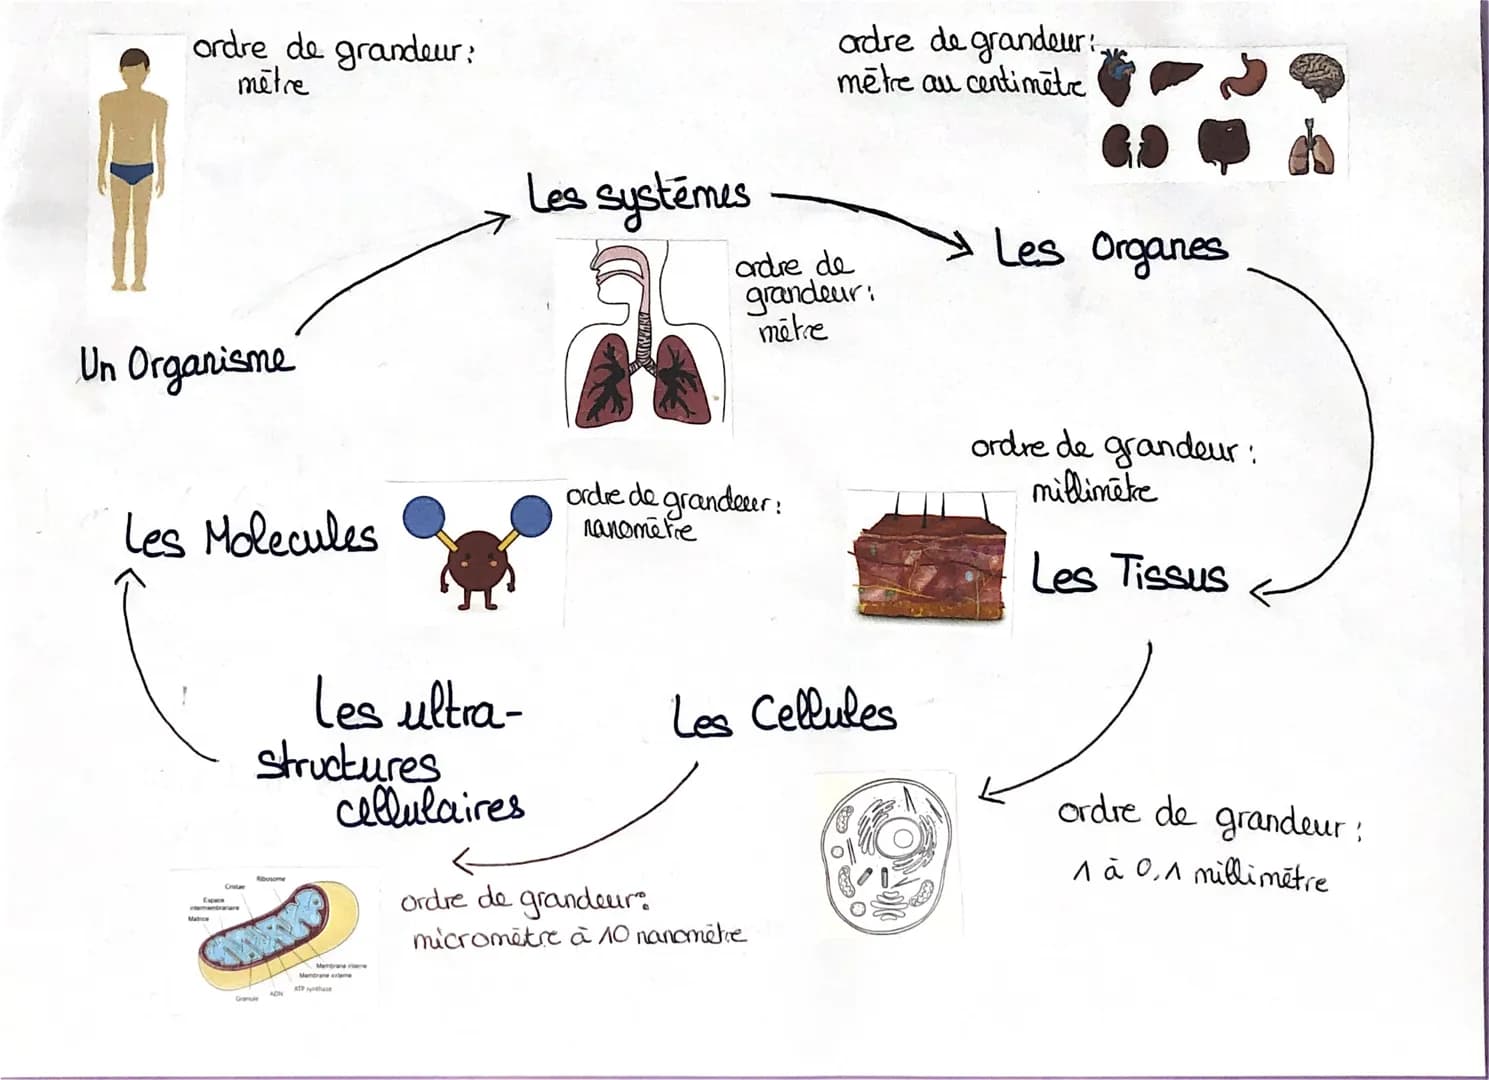 ordre de grandeur:
mētre
Un Organisme
Les systēmes
ordre de
grandeur:
mētre
ordre de grandeur:
mētre au centimētre
Les Organes
ordre de grandeur:
millimētre
Les Tissus
ordre de grandeur:
1 ā 0,1 millimētre
Les Cellules
Les ultra-
structures
cellulaires
ordre de grandeur:
micromētre ā 10 nanomētre
Ribosome
Cristae
Espace
intermembranaire
Matrice
Membrane interne
Membrane externe
ATP synthase
ADN
Granule
Les Molecules
ordre de grandeur:
nanomētre